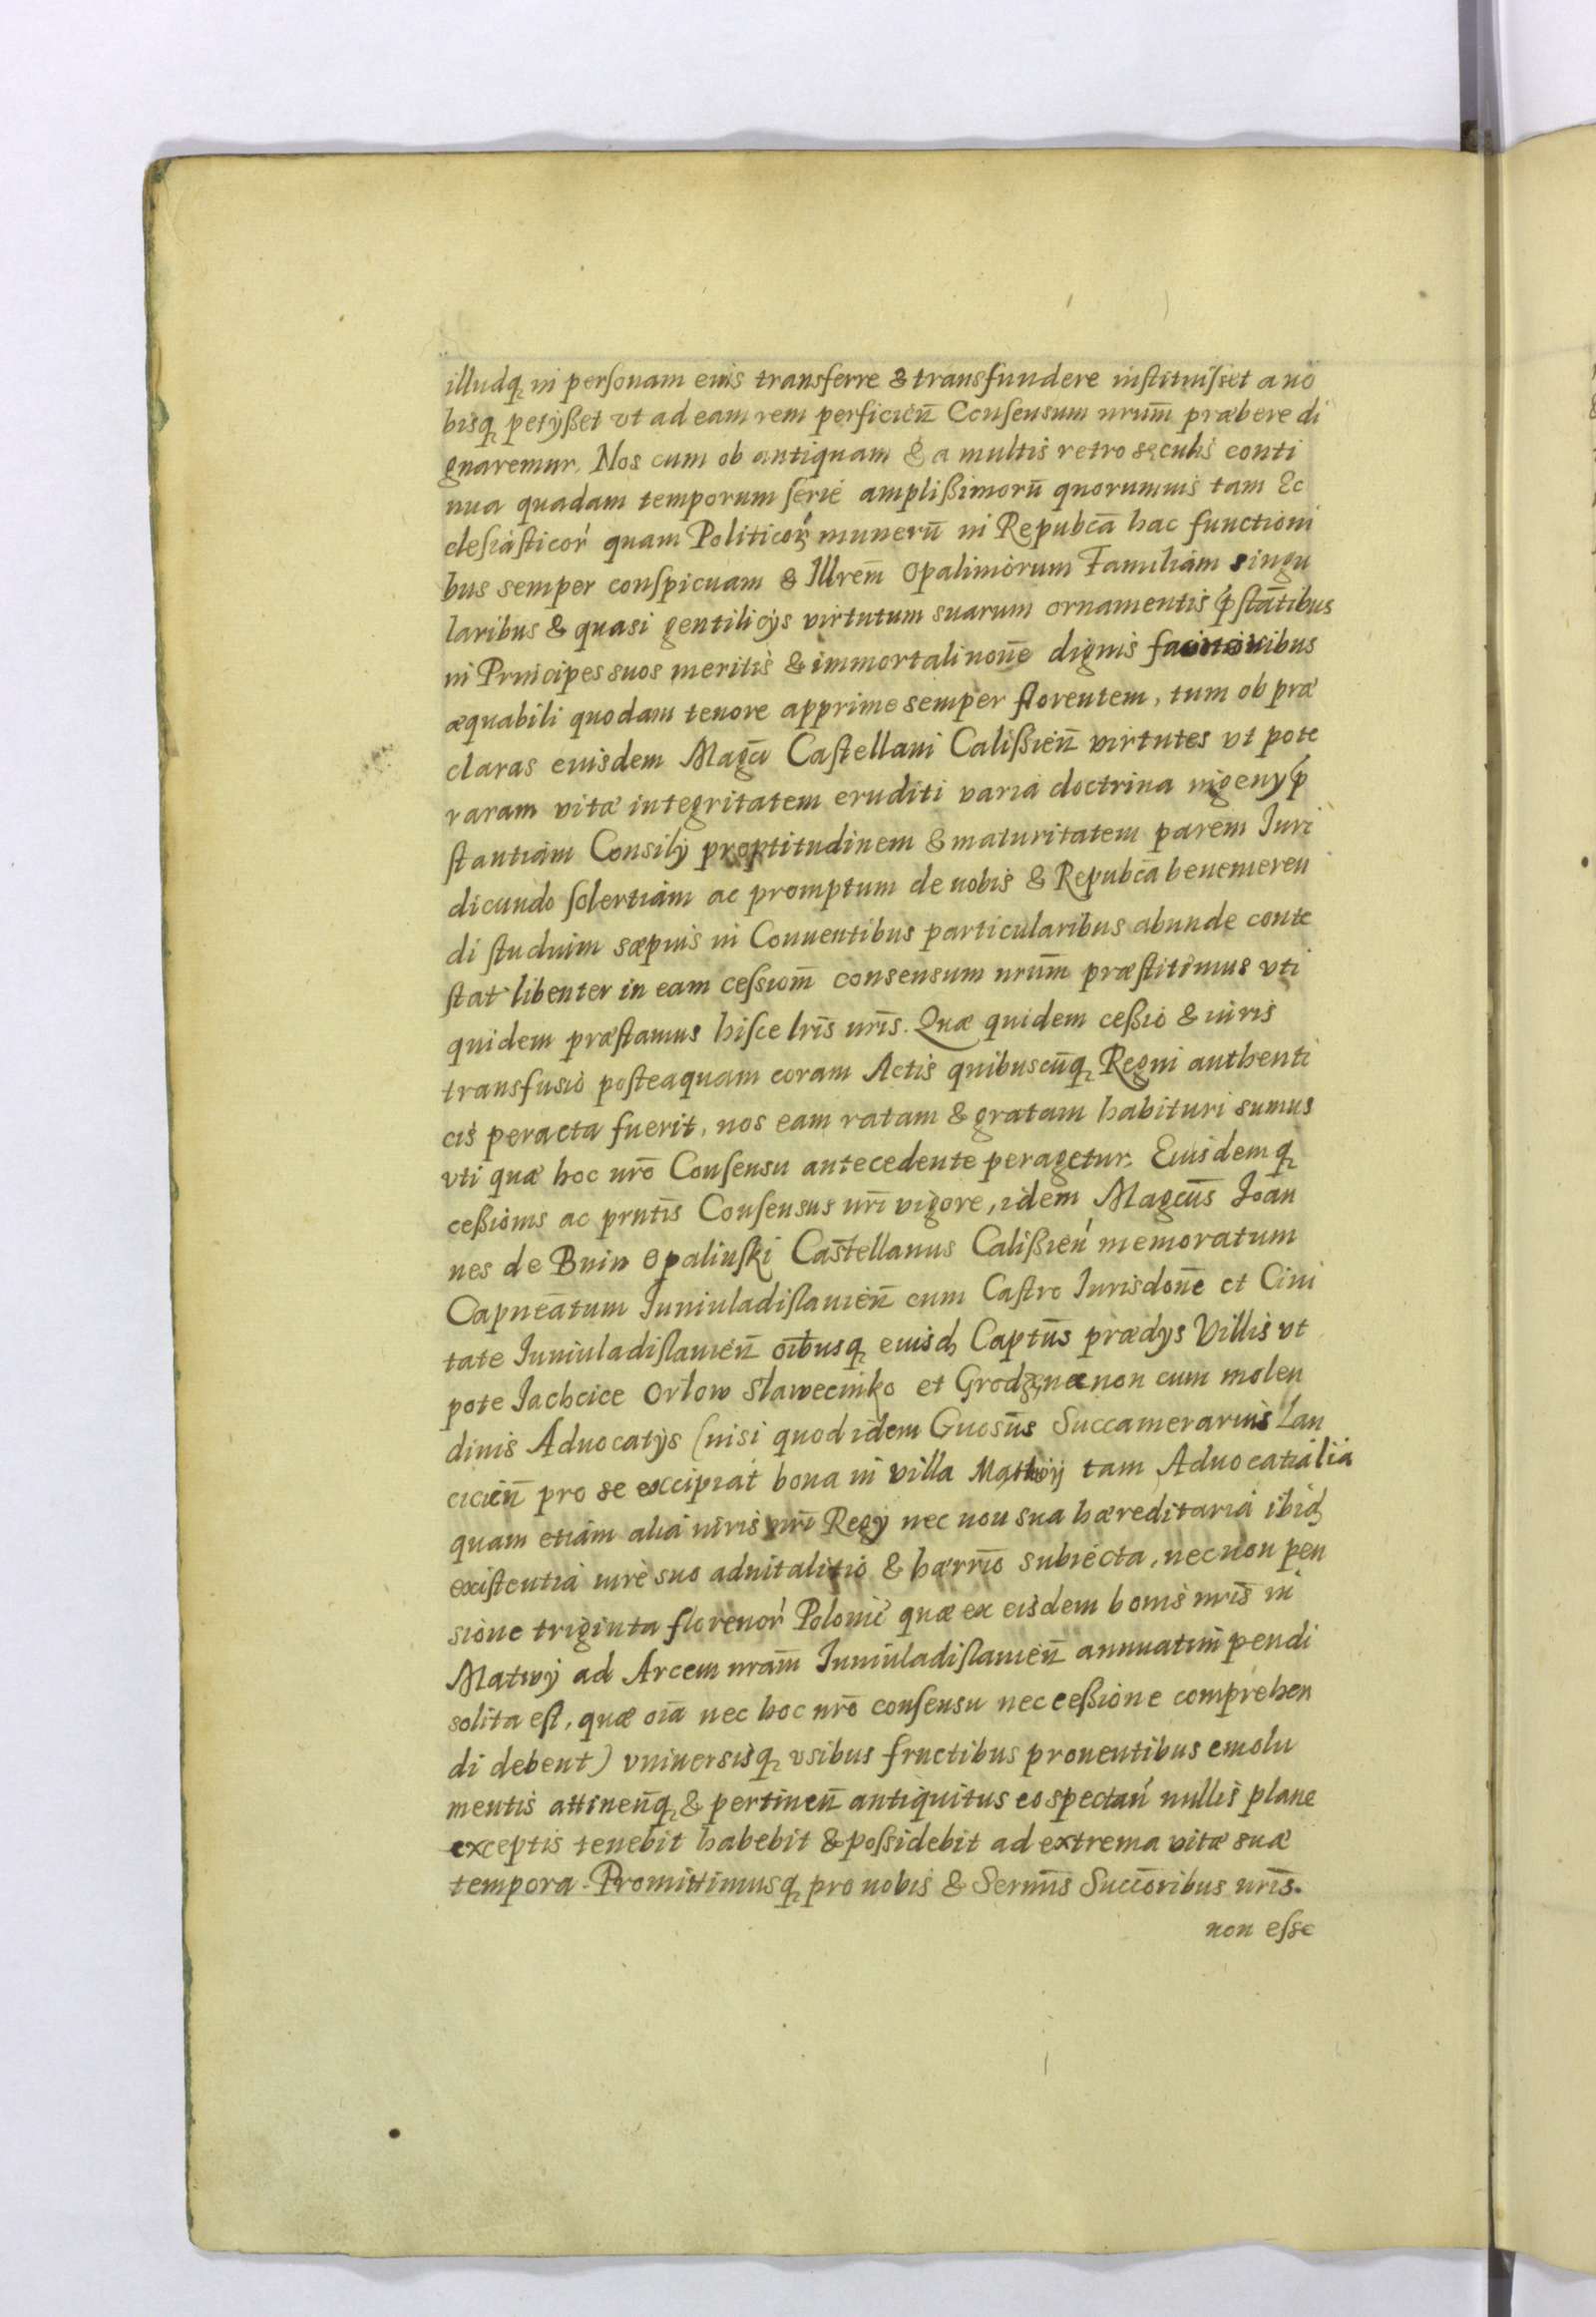 illudq in personam eius transferre & transfundere instituisset a no
bisq petyßet vt ad eam rem perficien̄ Consensum nrum̄ præbere di
gnaremur. Nos cum ob antiquam & a multis retro sęculis conti
nua quadam temporum serie amplißimorū quorumuis tam Ec
clesiasticoŕ quam Politicoŕ munerū in Repubcā hac functioni
bus semper conspicuam & Illrem̄ Opaliniorum Familiam singu
laribus & quasi gentilicÿs virtutum suarum ornamentis p̄stātibus
in Principes suos meritis & immortali noīne dignis facinoribus
æquabili quodam tenore apprime semper florentem, tum ob præ
claras eiusdem Magcī Castellani Calißien̄ virtutes vt pote
raram vitæ integritatem eruditi varia doctrina ingeny p̄
stantiam Consilÿ promptitudinem & maturitatem parem Iuri
dicundo solertiam ac promptum de nobis & Repubcā benemeren
di studium sæpius in Conuentibus particularibus abunde conte
stat libenter in eam cessiom̄ consensum nrum̄ præstitimus vti
quidem præstamus hisce lrīs nrīs. Quæ quidem ceßio & iuris
transfusio posteaquam coram Actis quibuscūq Regni authenti
cis peracta fuerit, nos eam ratam & gratam habituri sumus
vti quæ hoc nrō Consensu antecedente peragetur. Eiusdemq
ceßionis ac prntīs Consensus nrī vigore, idem Magcūs Joan
nes de Bnin Opalinski Castellanus Calißień memoratum
Capneātum Juniuladislauień cum Castro Iurisdonē et Ciui
tate Juniuladislauień oībusq eiusd Captūs prædÿs Villis vt
pote Jachcice Orłow Sławecinko et Grodzę nec non cum molen
dinis Aduocatÿs (nisi quod idem Gnosūs Succamerarius Lan
cicień pro se excipiat bona in villa Mathwÿ tam Aduocatialia
quam etiam alia iuris nrī Regÿ nec non sua hæreditaria ibid
existentia iure suo aduitalitio & hærrīo subiecta, nec non pen
sione triginta florenoŕ Polonic̄ quæ ex eisdem bonis nrīs in
Matwÿ ad Arcem nram̄ Juniuladislauień annuatim pendi
solita est, quæ oīa nec hoc nrō consensu nec ceßione comprehen
di debent) vniuersisq vsibus fructibus prouentibus emolu
mentis attineńq & pertineń antiquitus eo spectań nullis plane
exceptis tenebit habebit & possidebit ad extrema vitæ suæ
tempora. Promittimusq pro nobis & Sermīs Succōribus nrīs.
non esse